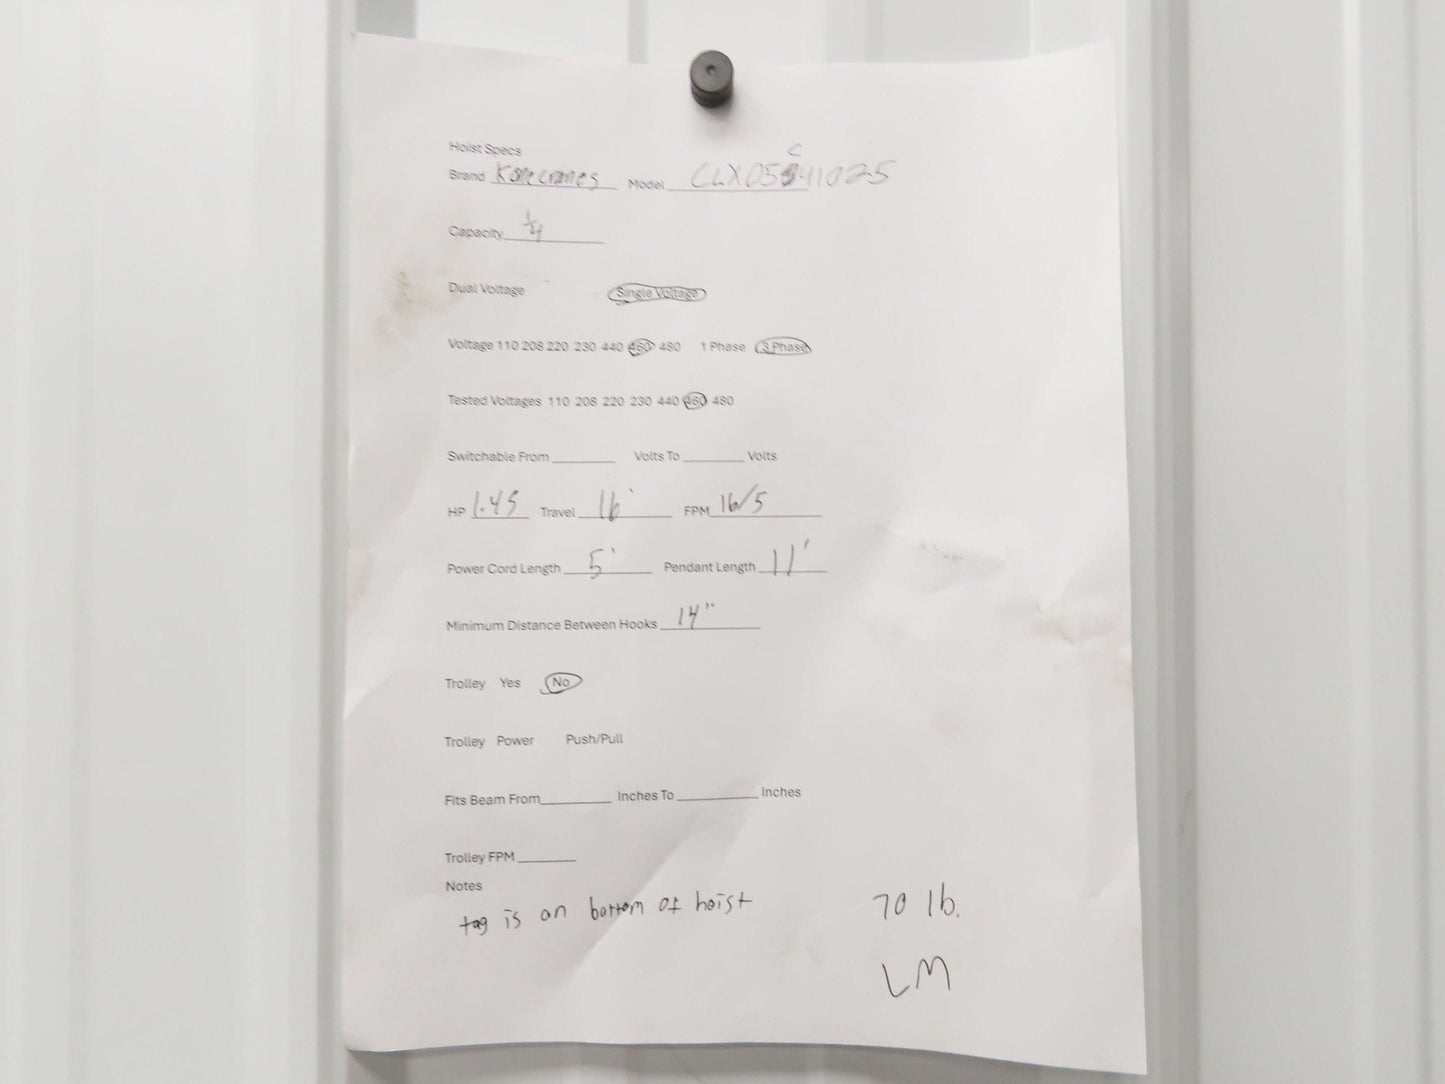 Hoist Specs
Brand Konecranes Model CLX05C041025
Capacity 1/4
Dual Voltage Single Voltage
Voltage 110 208 220 230 440 460 480 1 Phase 3 Phase
Tested Voltages 110 208 220 230 440 460 480
Switchable From ______ Volts To ______ Volts
HP 1.45 Travel 16' FPM 16/5
Power Cord Length 5' Pendant Length 11'
Minimum Distance Between Hooks 14"
Trolley Yes No
Trolley Power Push/Pull
Fits Beam From______ Inches To ______ Inches
Trolley FPM ______
Notes
tag is on bottom of hoist
70 lb.
LM